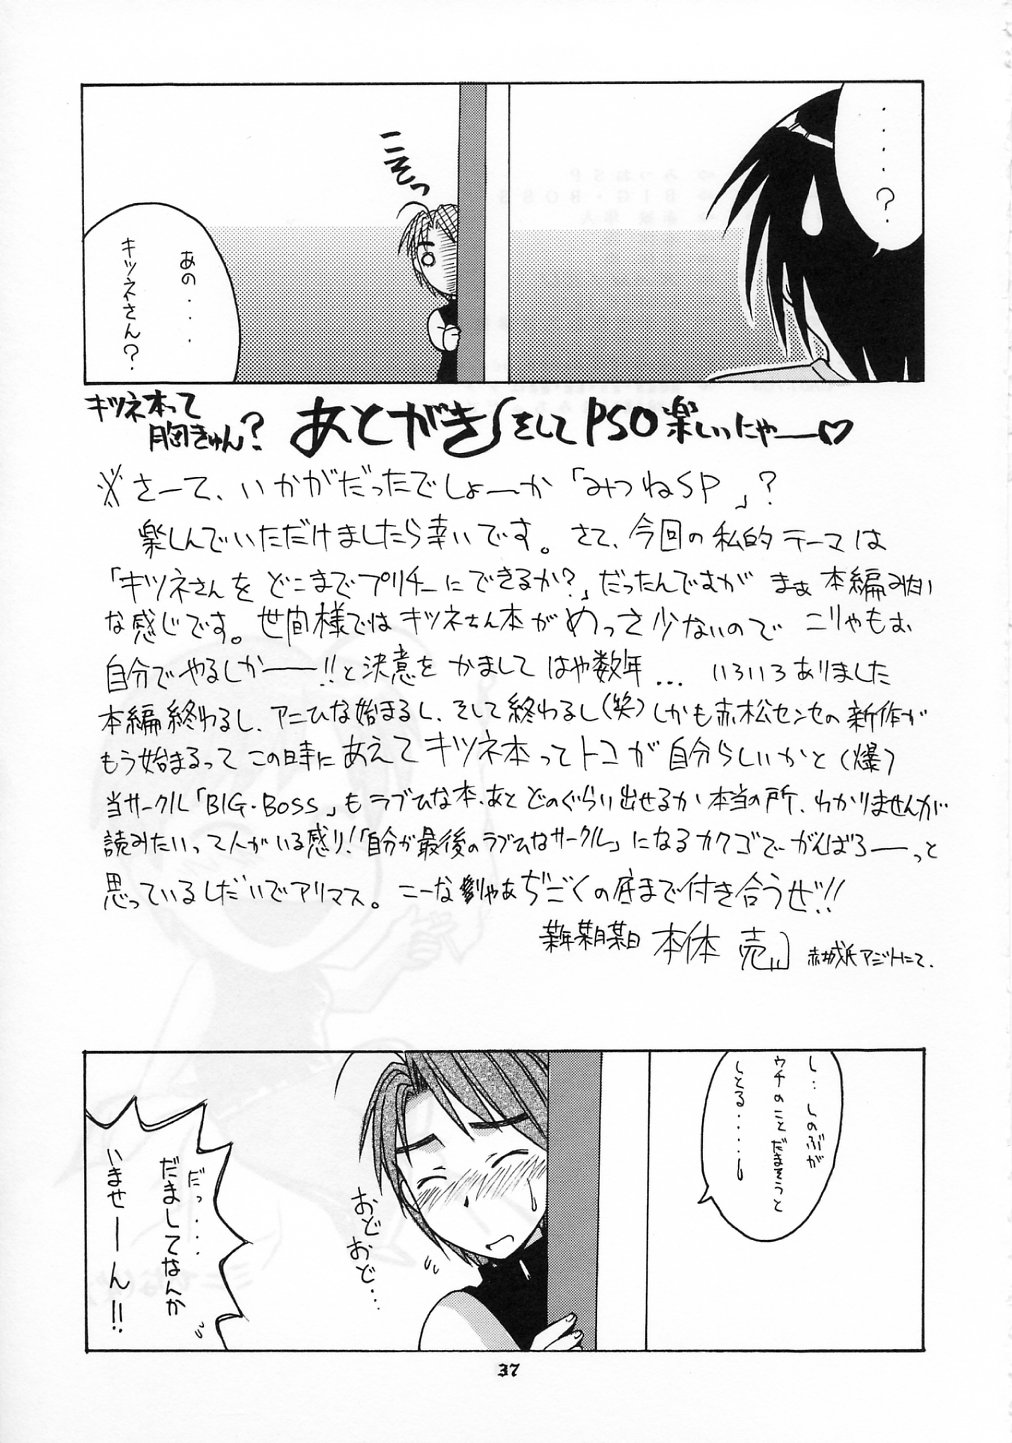 ・・・・・?
こそっ
あの・・・
キツネさん?
キツネ本って
胸きゅん?
あとがき
そしてPSO楽しいにゃー♡
※さーて、いかがだったでしょーか「みつねSP」?
楽しんでいただけましたら幸いです。さて、今回の私的テーマは
「キツネさんをどこまでプリチーにできるか?」だったんですが まぁ本編みたい
な感じです。世間様ではキツネさん本がめっさ少ないので こりゃもぉ
自分でやるしかーーー!!と決意をかまして はや数年... いろいろありました
本編終わるし、アニひな始まるし、そして終わるし(笑)しかも赤松センセの新作が
もう始まるって この時にあえてキツネ本ってトコが自分らしいかと(爆)
当サークル「BIG・BOSS」もラブひな本、あとどのぐらい出せるか本当の所、わかりませんが
読みたいって人がいる感り!「自分が最後のラブひなサークル」になるカクゴでがんばろーーっと
思っているしだいでアリマス。こーなりゃあぢごくの底まで付き合うぜ!!
某年某月某日 本体 売 赤城氏アジトにて。
し・・しのぶが
ウチのことだまそうと
しとる・・・・・
おど
おど・・・
だっ・・・・
だましてなんか
いませーーん!!
37